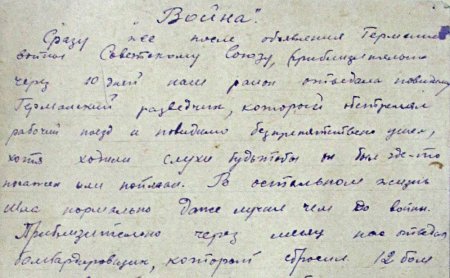 "Война".
Сразу же после объявления Германией
войны Советскому Союзу, приблизительно
через 10 дней наш район отведала повидимому
Германский разведчик, который обстрелял
рабочий поезд и повидимо безпрепятствено ушел,
хотя ходили слухи будьтобы он был где-то
пойман. В остальном жизнь
шла нормально даже лучше чем до войны.
Приблизительно через месяц нас отведал
бомбардировщик, который сбросил 12 бомб